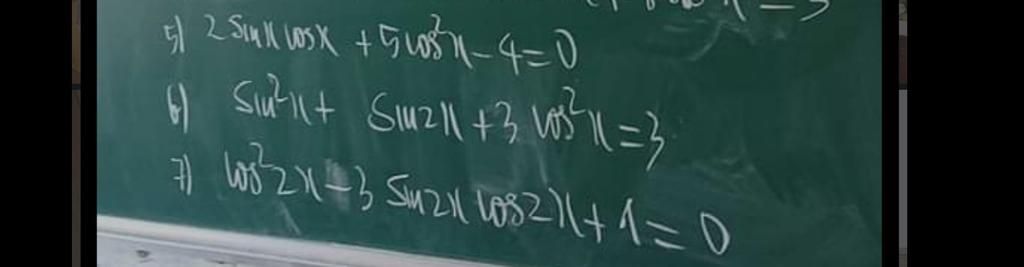 5) 2 sinx cosx + 5 cos²x - 4 = 0
6) sin²x + sin2x + 3 cos²x = 3
7) cos²2x - 3 sin2x cos2x + 1 = 0